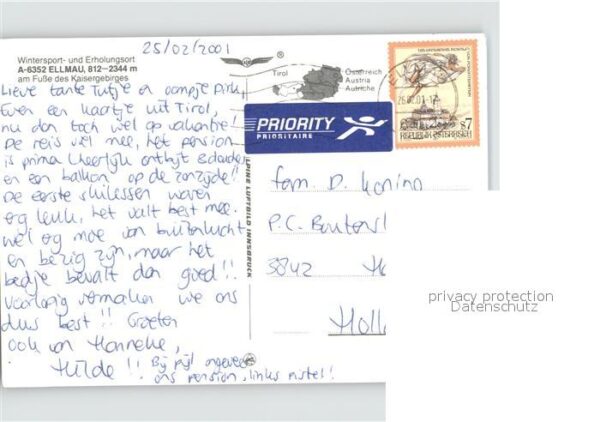 25/02/2001
Wintersport- und Erholungsort
A-6352 ELLMAU, 812-2344 m
am Fuße des Kaisergebirges
Lieve tante Tutje en oompje Dirk,
Even een kaartje uit Tirol,
nu dan toch wel op vakantie!
De reis viel mee, het pension
is prima heerlijk ontbijt
en een balkon op de zonzijde!!
De eerste skilessen waren
erg leuk, het valt best mee.
Wel erg moe van buitenlucht
en bezig zijn, maar het
bedje bevalt dan goed!!
Voorlopig vermaken we ons
dus best!! Groeten
ook van Hanneke,
Hilde!! Bij pijl ongeveer
ons pension, links
Tirol
Österreich
Austria
Autriche
PRIORITY
PRIORITAIRE
REPUBLIK ÖSTERREICH
S7
ALPINE LUFTBILD INNSBRUCK
fam. D. Koning
P.C.
3842
Holl
privacy protection
Datenschutz